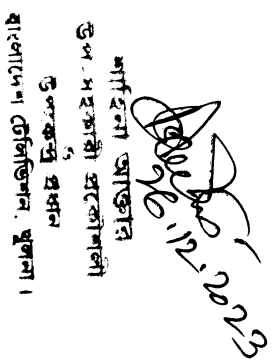 26.12.2023
আক্তার
উপ-সহকারী প্রকৌশলী
উপকেন্দ্র প্রধান
বাংলাদেশ টেলিভিশন, খুলনা।